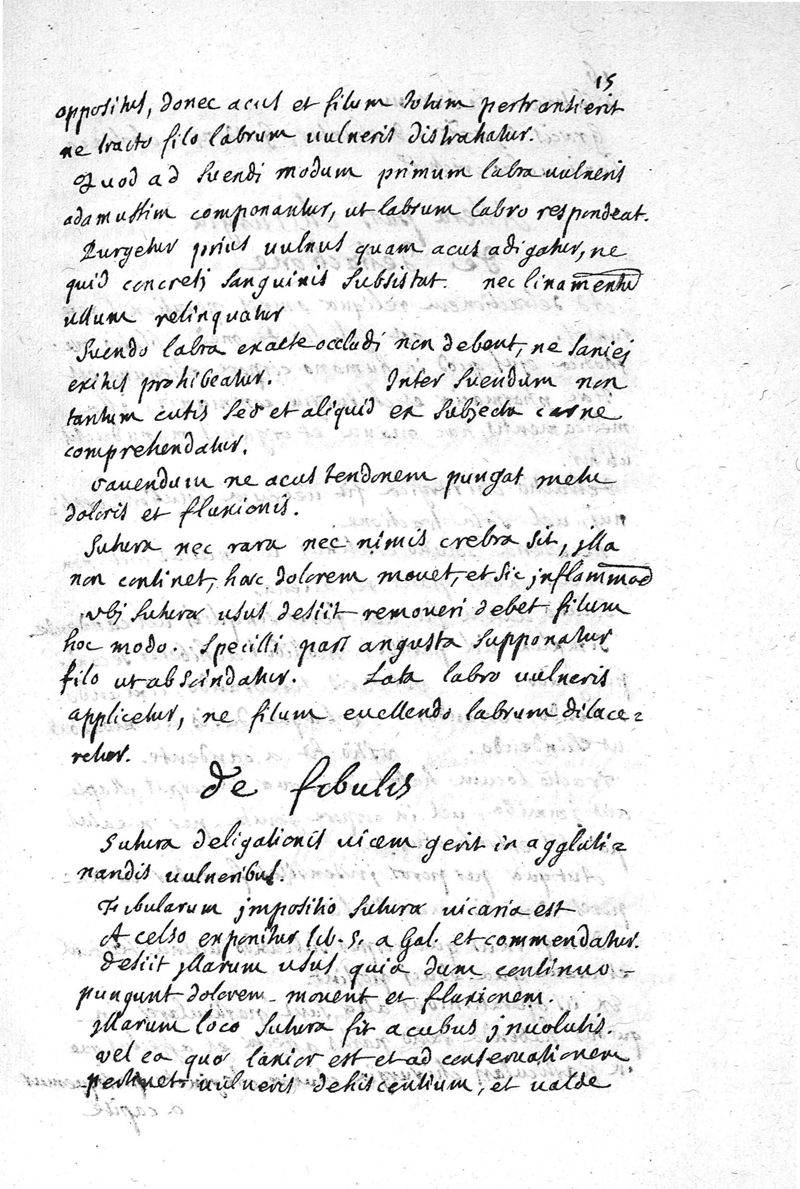 15
oppositus, donec acus et filum totum pertransierit
ne tracto filo labrum uulneris distrahatur.
Quod ad suendi modum primum labra uulneris
adamussim componantur, ut labrum labro respondeat.
Purgetur prius uulnus quam acus adigatur, ne
quid concreti sanguinis subsistat. nec linamentu
ullum relinquatur
Suendo labra exacte occludi non debent, ne saniej
exitus prohibeatur. Inter suendum non
tantum cutis sed et aliquid ex subjecta carne
comprehendatur.
Cauendum ne acus tendonem pungat metu
doloris et fluxionis.
Sutura nec rara nec nimis crebra sit, jlla
non continet, haec dolorem mouet, et sic jnflammaõ
vbj suturae usus desiit remoueri debet filum
hoc modo. specilli pars angusta supponatur
filo ut abscindatur. Lata labro uulneris
applicetur, ne filum euellendo labrum dilace=
retur.
de fibulis
Sutura deligationis uicem gerit in aggluti=
nandis uulneribus.
Fibularum jmpositio suturae uicaria est
A celso exponitur lib. 5. a Gal. et commendatur.
desiit jllarum usus quia dum continuo -
pungunt dolorem mouent et fluxionem.
jllarum loco sutura fit acubus jnuolutis.
vel ea quae laxior est et ad conseruationem
pertinet uulneris dehiscentium, et ualde
a capite